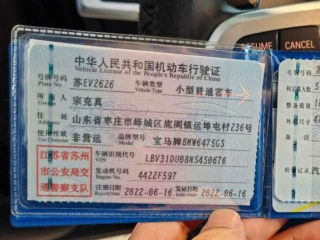 RESUME
CANCEL
中华人民共和国机动车行驶证
Vehicle License of the People's Republic of China
号牌号码 苏EV26Z6 车辆类型 小型普通客车
Plate No. Vehicle Type
所有人 宗克真
Owner
住址 山东省枣庄市峄城区底阁镇运埠屯村236号
Address
使用性质 非营运 品牌型号 宝马牌BMW6475GS
Use Character Model
江苏省苏州
市公安局交
通警察支队
车辆识别代号 LBV31DU08NS450676
VIN
发动机号码 442ZF597
Engine No.
注册日期 2022-06-16 发证日期 2022-06-16